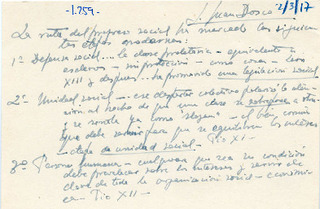 -1.259-
S. Juan Bosco
2/3/17
La ruta del progreso social ha marcado las siguien-
tes etapas
1º Defensa social... la clase proletaria - equivalente a
esclavos - sin protección - como cosas - León
XIII y después... ha promovido una legislación social
2º- Unidad social - ese despertar colectivo polarizó la aten-
ción al hecho de que una clase se sobrepusiera a otra
y se ponía ya como "slogan" - el bien común
que debe para que se equilibren los intereses
- etapa de unidad social - Pío XI -
3º- Persona humana - cualquiera que sea su condición
debe prevalecer sobre los intereses y servir de
clave de toda la organización social - económi-
ca - Pío XII -